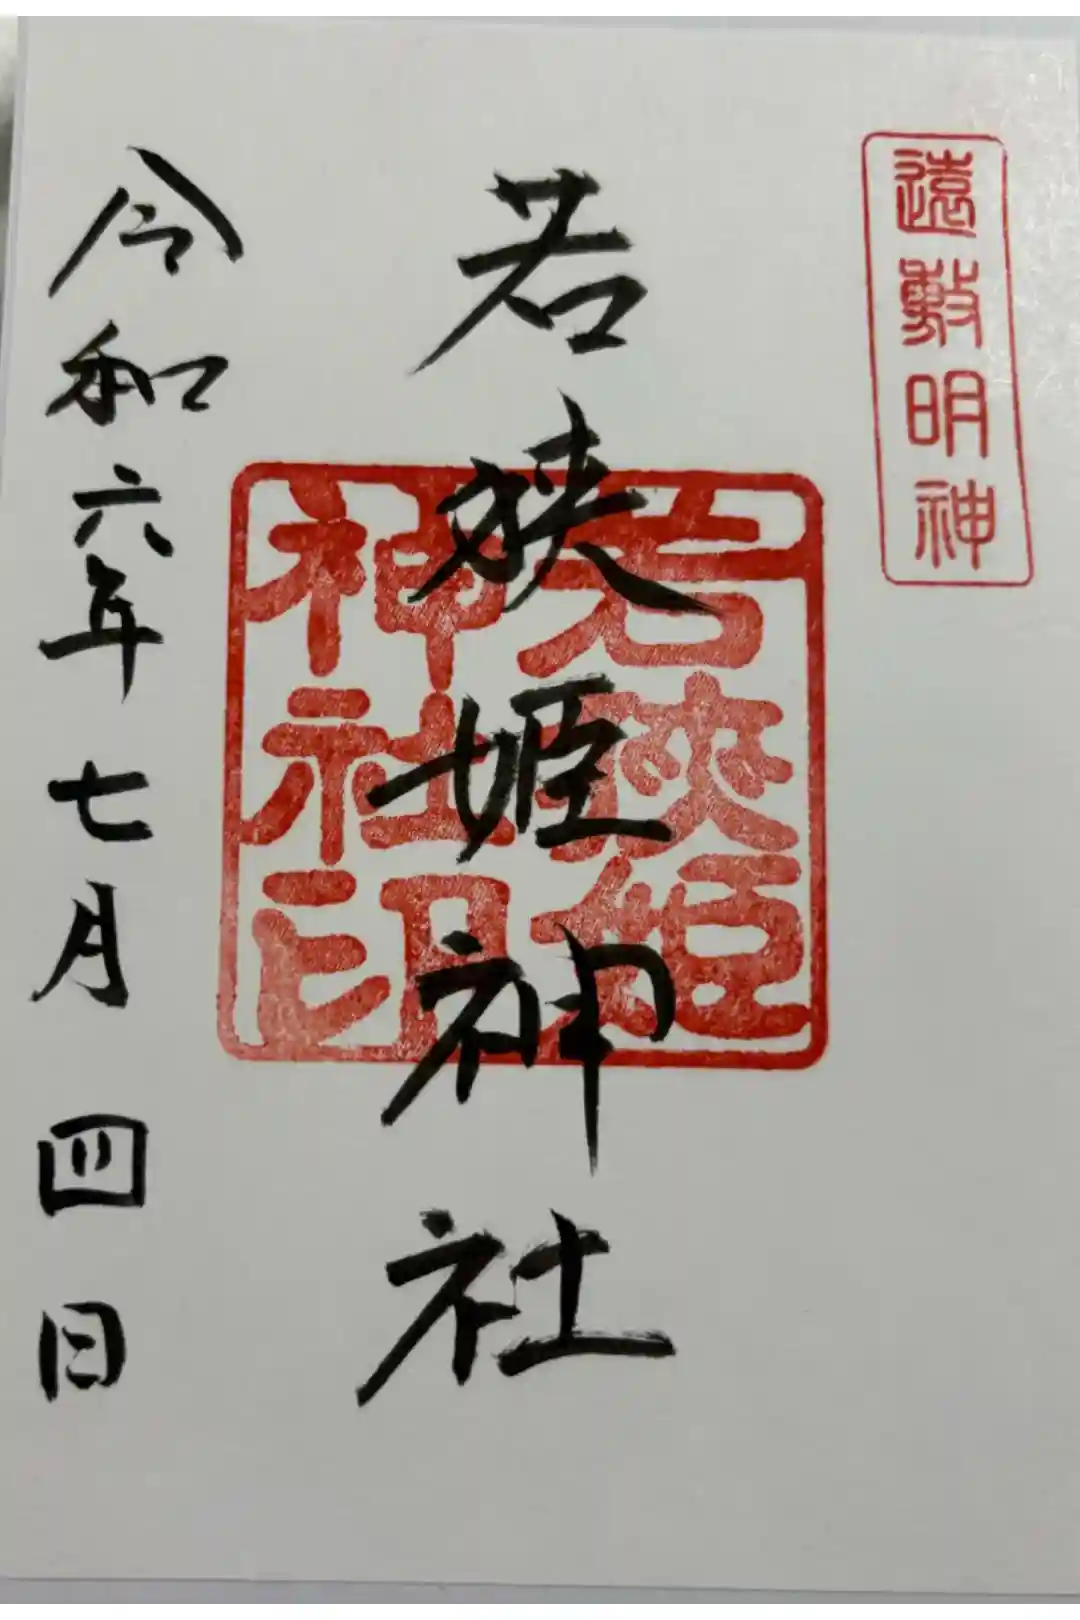 遠敷明神
若狭姫神社
若狭姫
神社印
令和六年七月四日